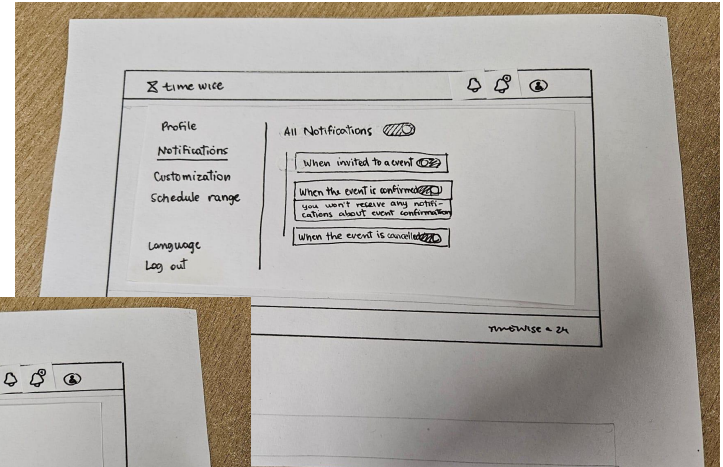 time wise
Profile
Notifications
Customization
Schedule range
Language
Log out
All Notifications
When invited to a event
When the event is confirmed
you won't receive any notifi-
cations about event confirmation
When the event is cancelled
timewise